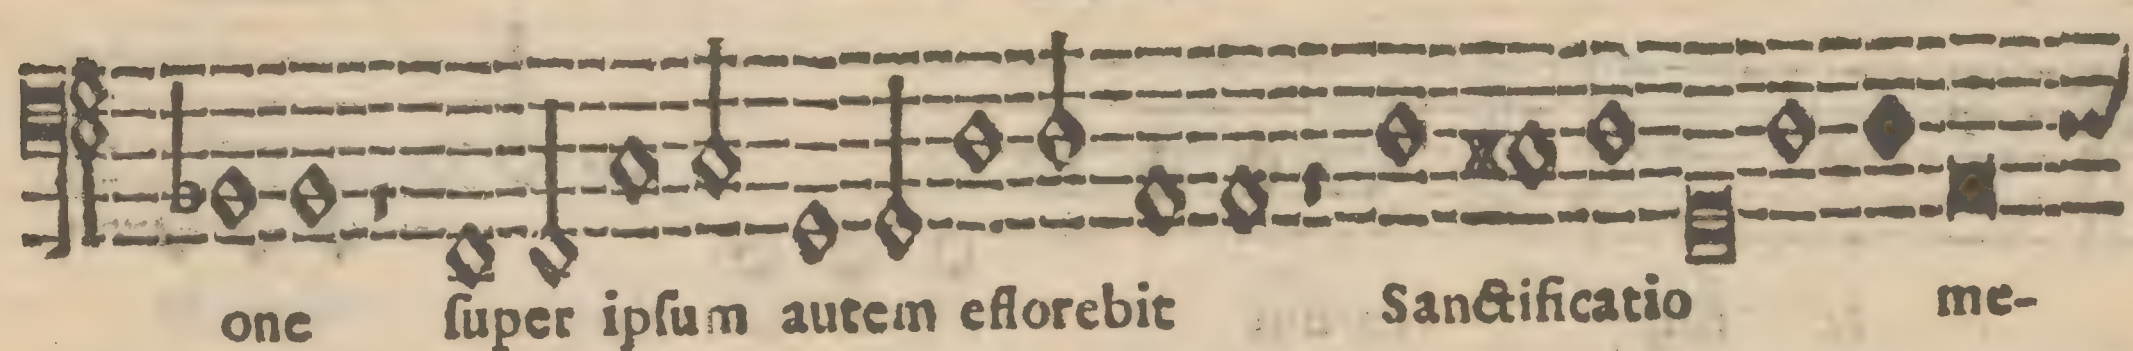 one ſuper ipſum autem eflorebit Sanctificatio me-